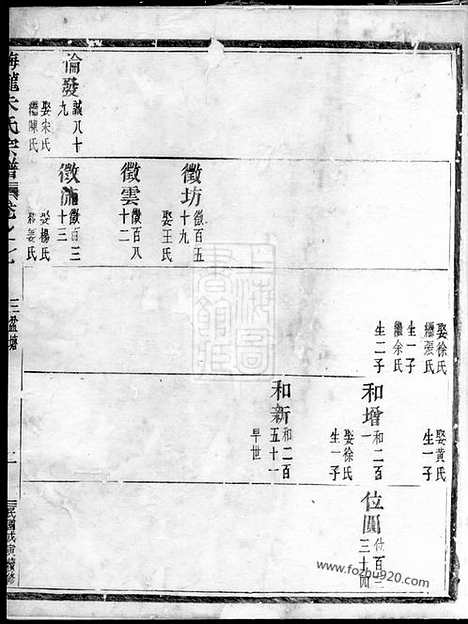 娶徐氏
繼張氏
生一子
繼余氏
生二子
娶黃氏
生一子
和增
和二百
一
娶徐氏
生一子
和新
和二百
五十一
早世
位圓
位百二
三十四
徵坊
徵百五
十九
娶王氏
徵雲
徵百八
十二
徵流
徵百三
十三
娶楊氏
繼姜氏
論發
誠八十
九
娶宋氏
繼陳氏
氏宗譜
卷之七
三益塘
二
www.fozhu920.com